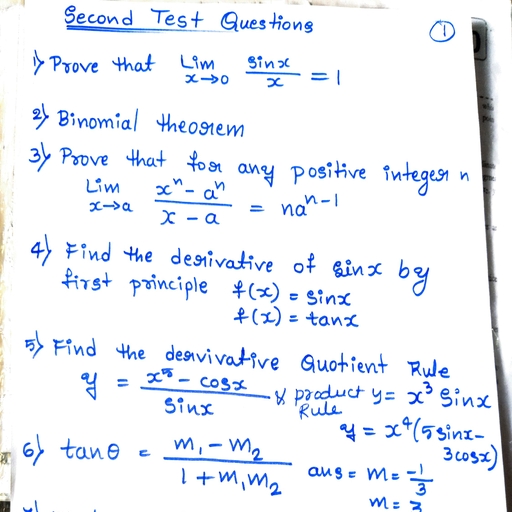 Second Test Questions
①
1) Prove that Lim x→0 sinx/x = 1
2) Binomial theorem
3) Prove that for any positive integer n
Lim x→a (xⁿ - aⁿ)/(x - a) = naⁿ⁻¹
4) Find the derivative of sinx by
first principle f(x) = sinx
f(x) = tanx
5) Find the dervivative Quotient Rule
y = (x⁵ - cosx)/sinx & product Rule y = x³ sinx
y = x⁴(5sinx - 3cosx)
6) tanθ = (m₁ - m₂)/(1 + m₁m₂) ans = m = -1/3
m = 3